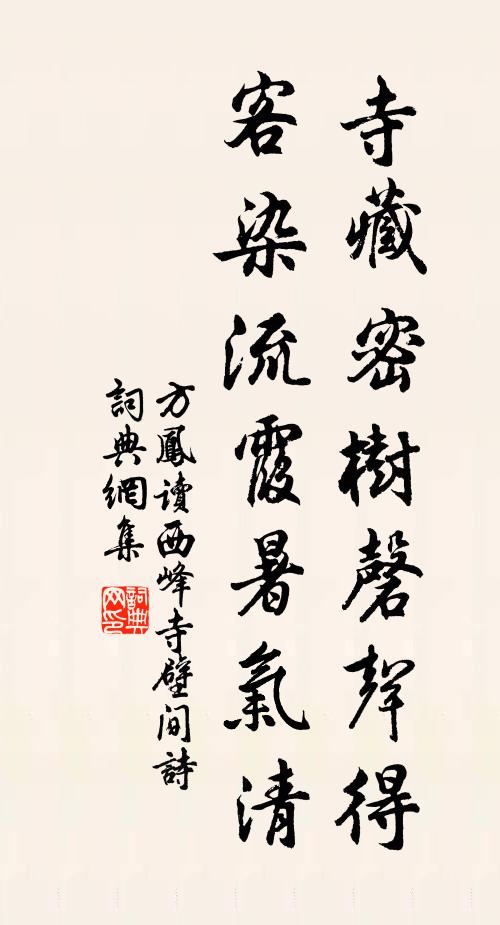 寺藏密樹磬聲得
客染流霞暑氣清
方鳳讀西峰寺壁间詩
詞典網集
詞典
网印